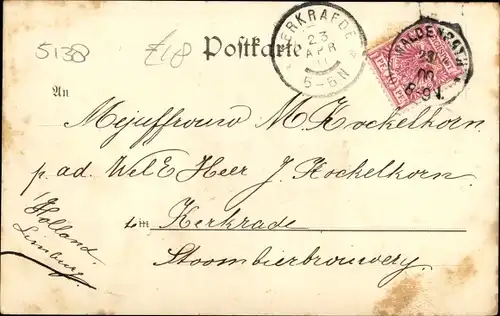 5138
£18
Postkarte
KERKRADE
23
APR
5-6N
23
00
8-9V.
An
Mejuffrouw M. Hockelhorn.
p. ad. WelE Heer J. Hockelkorn.
in Kerkrade
Stoombierbrouwery.
Holland
Limburg.